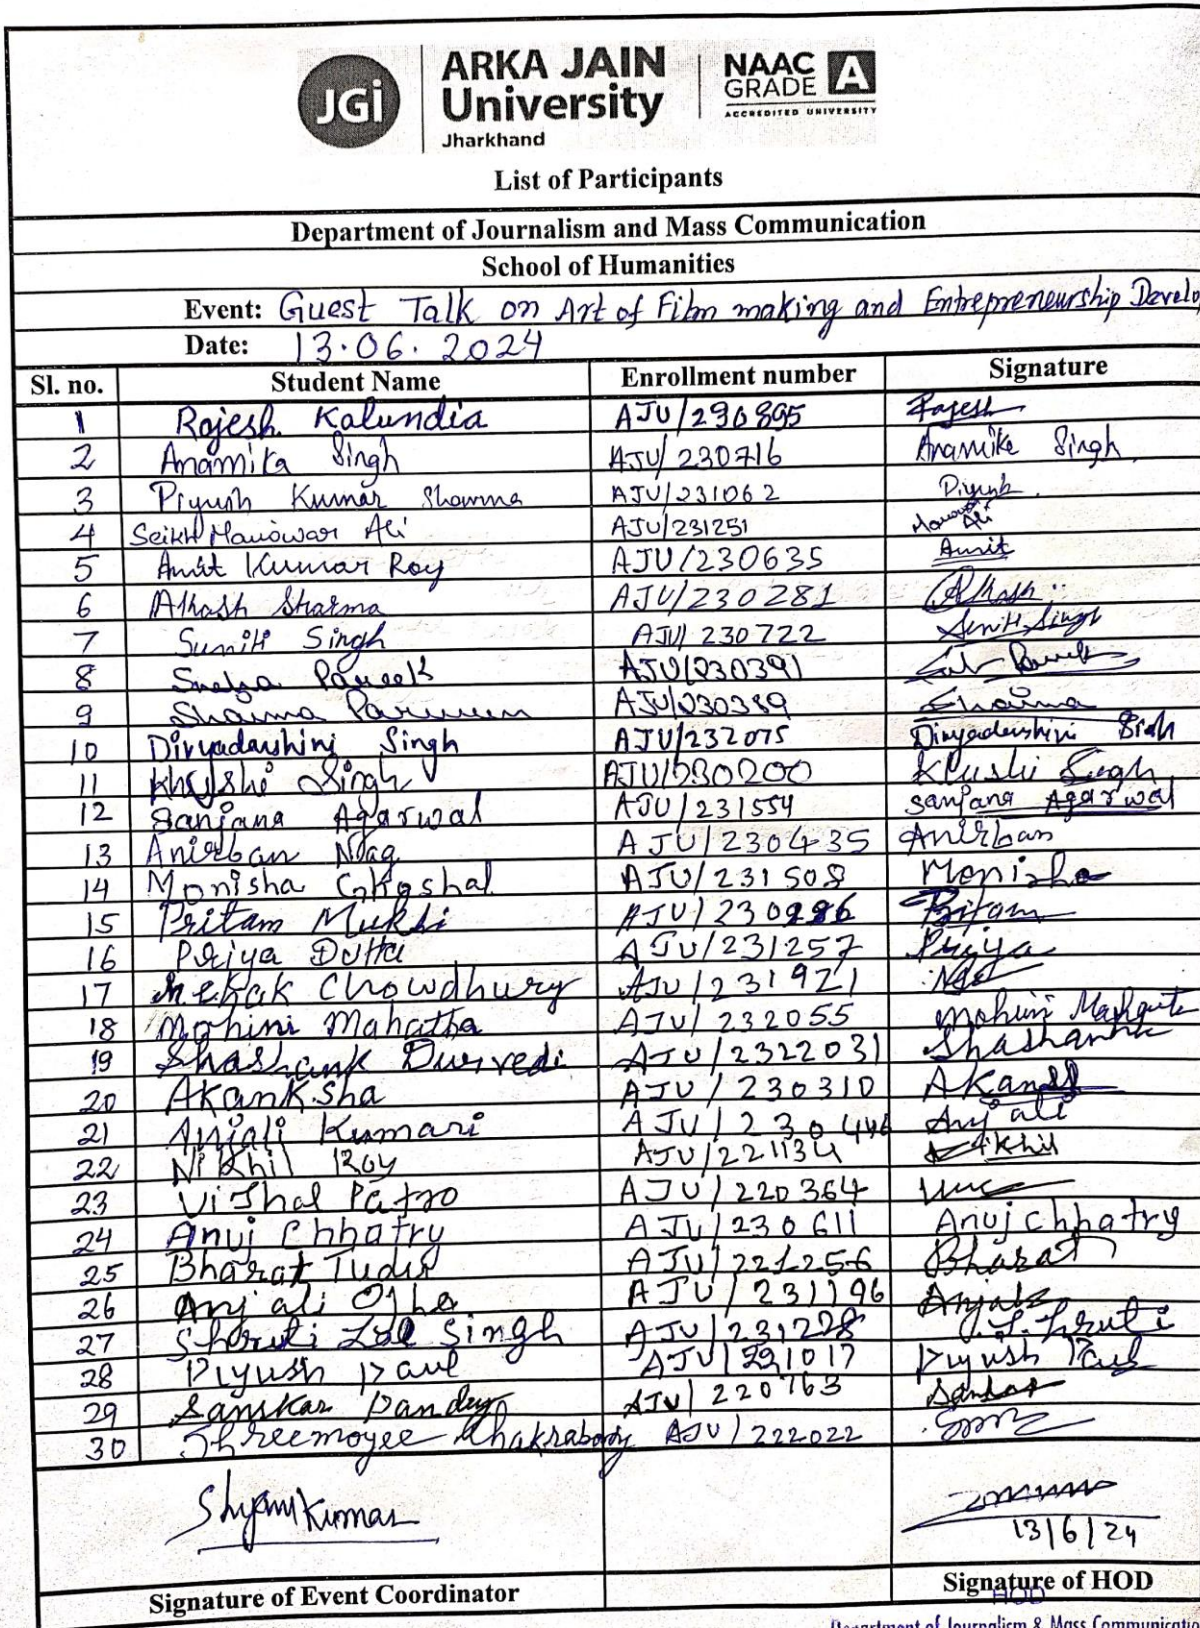 JGi
ARKA JAIN
University
Jharkhand
NAAC
GRADE A
ACCREDITED UNIVERSITY
List of Participants
Department of Journalism and Mass Communication
School of Humanities
Event: Guest Talk on Art of Film making and Entrepreneurship Develo
Date: 13.06.2024
Sl. no. Student Name Enrollment number Signature
1 Rajesh Kalundia AJU/230895 Rajesh
2 Anamika Singh AJU/230716 Anamike Singh
3 Piyush Kumar Sharma AJU/231062 Piyush
4 Seikh Manowar Ali AJU/231251 Manowar Ali
5 Amit Kumar Roy AJU/230635 Amit
6 Akash Sharma AJU/230281 Akash
7 Suniti Singh AJU/230722 Suniti Singh
8 Sneha Pareek AJU/230391
9 Shaima Parween AJU/230389 Shaima
10 Divyadarshini Singh AJU/232075 Divyadarshini Sigh
11 Khushi Singh AJU/230200 Khushi Singh
12 Sanjana Agarwal AJU/231554 Sanjana Agarwal
13 Anirban Nag AJU/230435 Anirban
14 Monisha Ghoshal AJU/231508 Monisha
15 Pritam Mukhi Pritam
16 Priya Dutta AJU/231257 Priya
17 Mehak Chowdhury AJU/231921
18 Mohini Mahatha AJU/232055 Mohini
19 Shashank Durvedi AJU/2322031 Shashank
20 Akanksha AJU/230310
21 Anjali Kumari AJU/230446 Anjali
22 Nikhil Roy AJU/221134 Nikhil
23 Vishal Patro AJU/220364
24 Anuj Chhatry AJU/230611 Anuj chhatry
25 Bharat Tudu AJU/221256 Bharat
26 Anjali Ojha AJU/231196 Anjali
27 Shruti Lal Singh AJU/231228 Shruti
28 Piyush Paul AJU/221017 Piyush Paul
29 Sanskar Pandey AJU/220763 Sanskar
30 Shreemoyee Chakraborty AJU/222022
Shyam Kumar
13/6/24
Signature of Event Coordinator Signature of HOD
HOD
Department of Journalism & Mass Communicatio